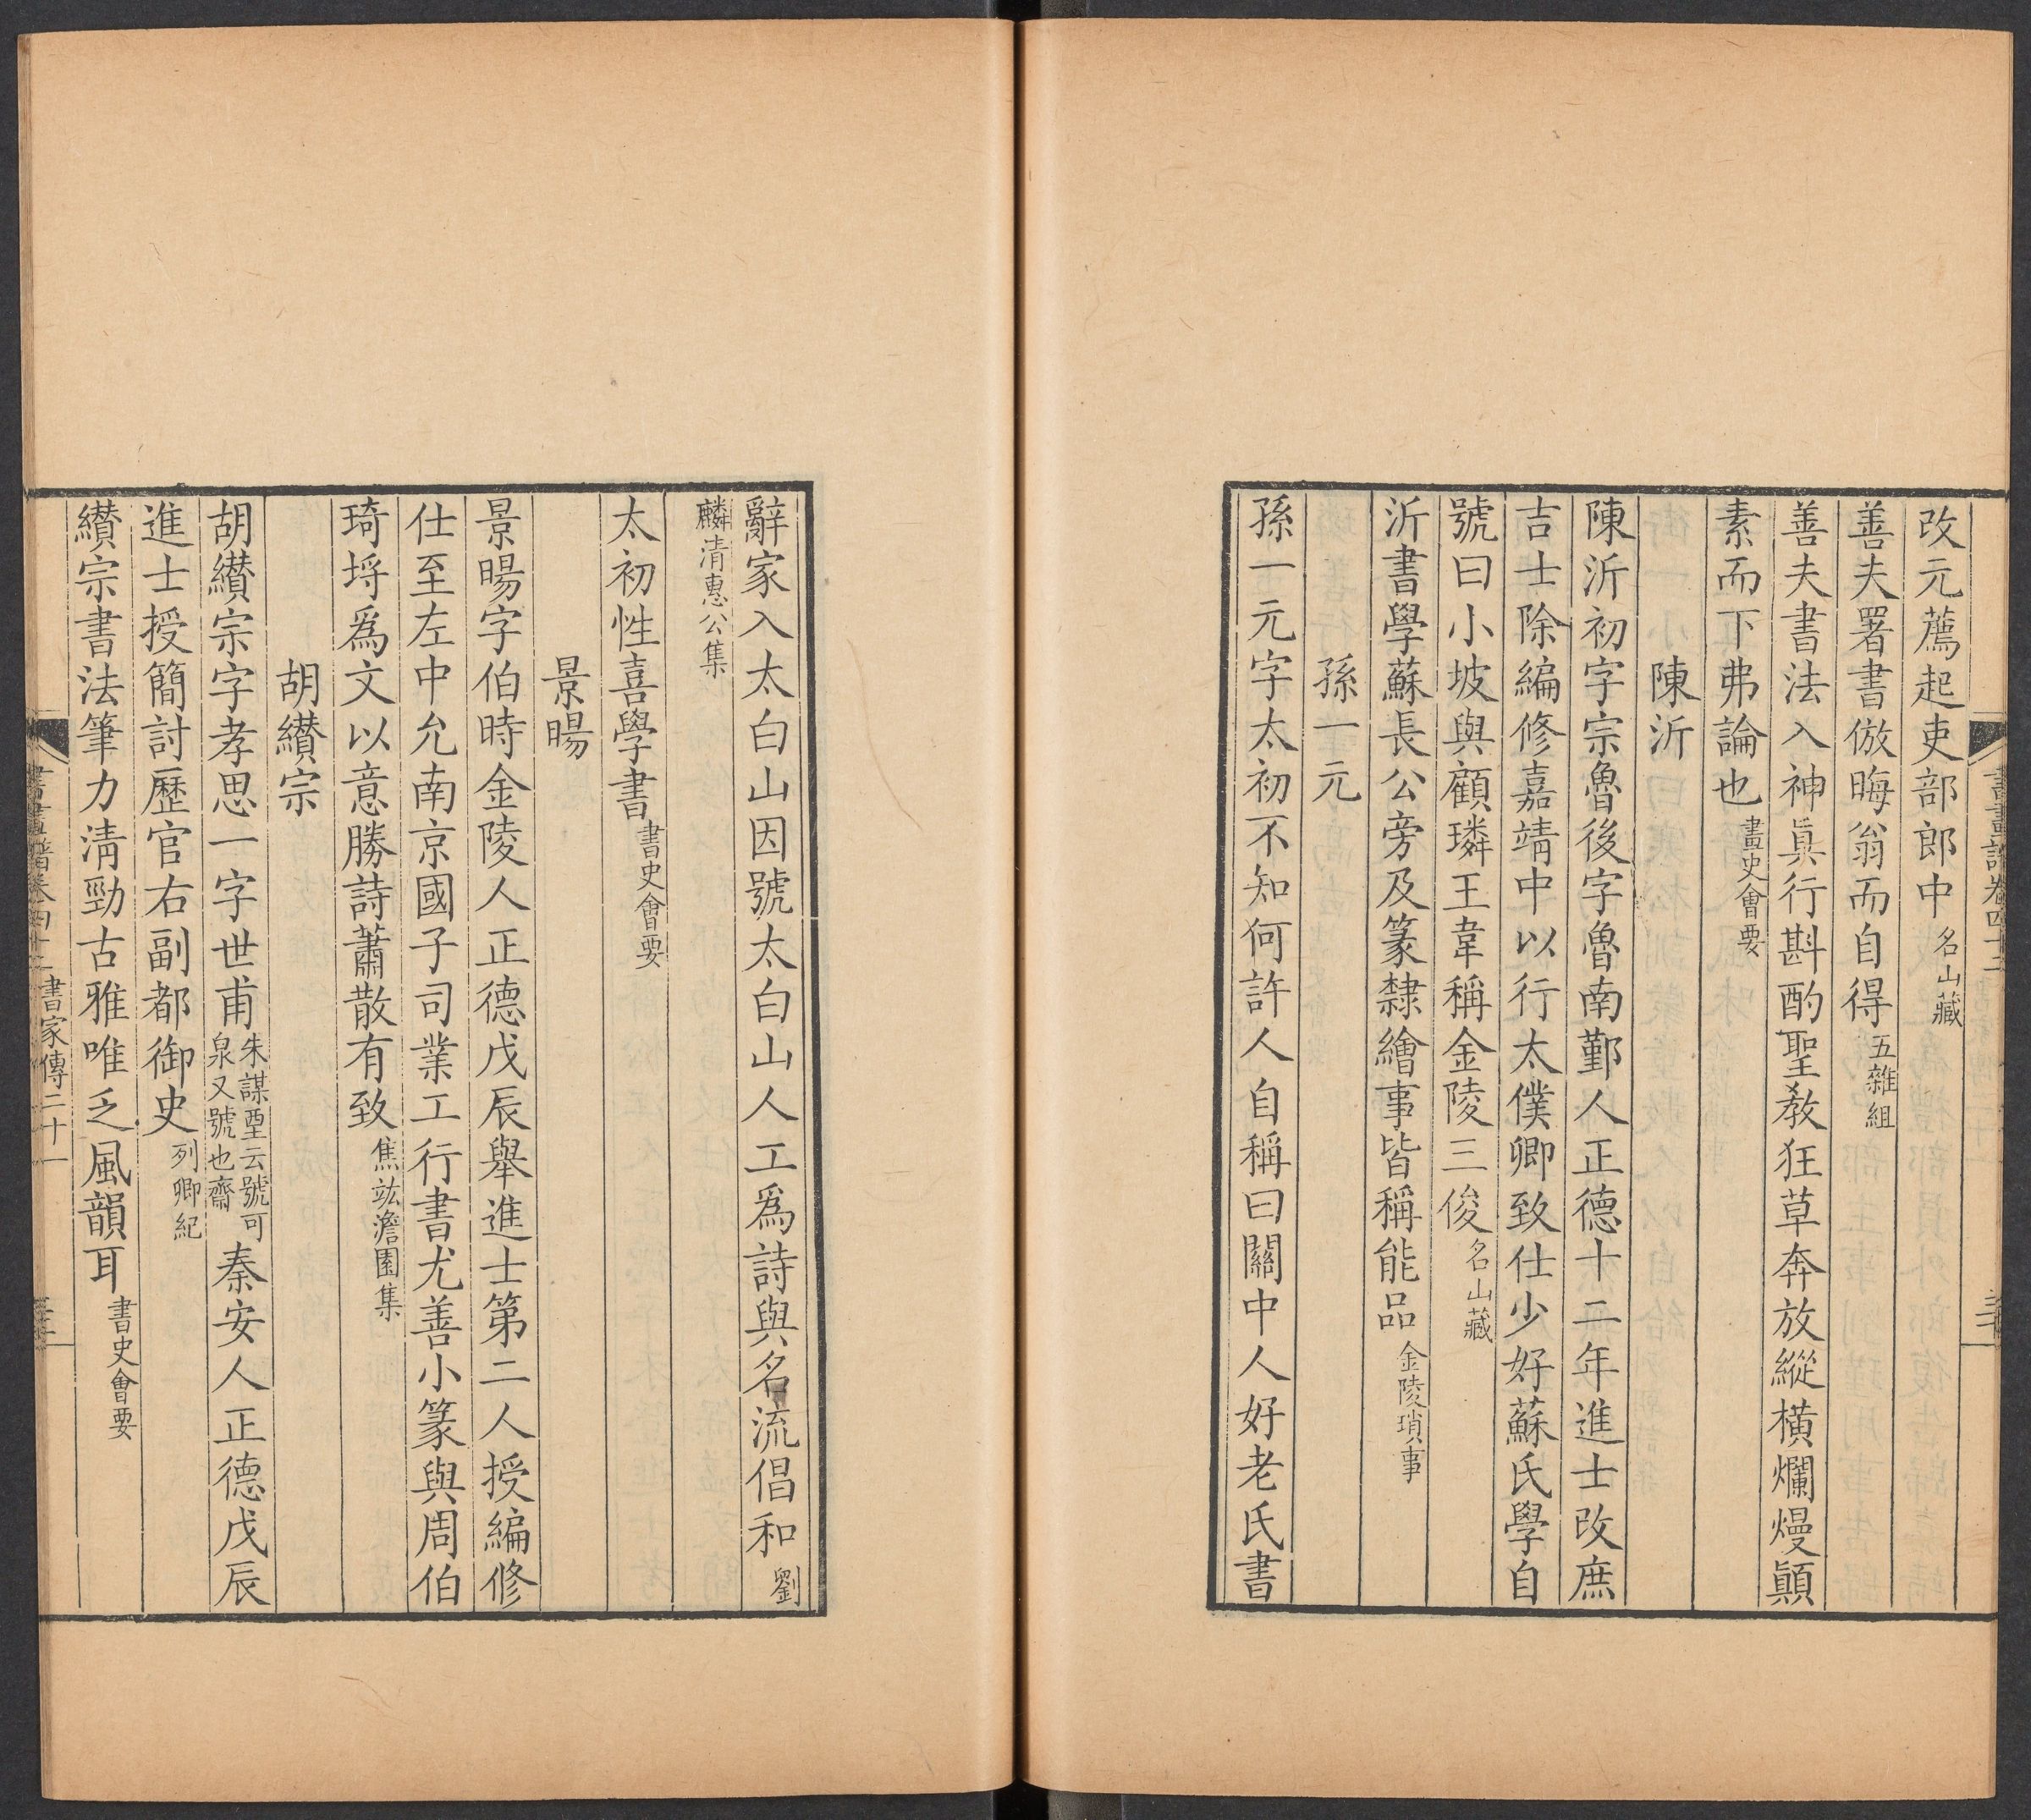 改元薦起吏部郎中名山藏
善夫署書倣晦翁而自得五雜組
善夫書法入神眞行斟酌聖教狂草奔放縱橫爛熳顚
素而下弗論也書史會要
陳沂
陳沂初字宗魯後字魯南鄞人正德十二年進士改庶
吉士除編修嘉靖中以行太僕卿致仕少好蘇氏學自
號曰小坡與顧璘王韋稱金陵三俊名山藏
沂書學蘇長公旁及篆隸繪事皆稱能品金陵瑣事
孫一元
孫一元字太初不知何許人自稱曰關中人好老氏書
辭家入太白山因號太白山人工爲詩與名流倡和劉
麟清惠公集
太初性喜學書書史會要
景暘
景暘字伯時金陵人正德戊辰舉進士第二人授編修
仕至左中允南京國子司業工行書尤善小篆與周伯
琦埒爲文以意勝詩蕭散有致焦竑澹園集
胡纘宗
胡纘宗字孝思一字世甫朱謀垔云號可泉又號也齋秦安人正德戊辰
進士授簡討歷官右副都御史列卿紀
纘宗書法筆力淸勁古雅唯乏風韻耳書史會要
書畫譜卷四十二 書家傳二十一